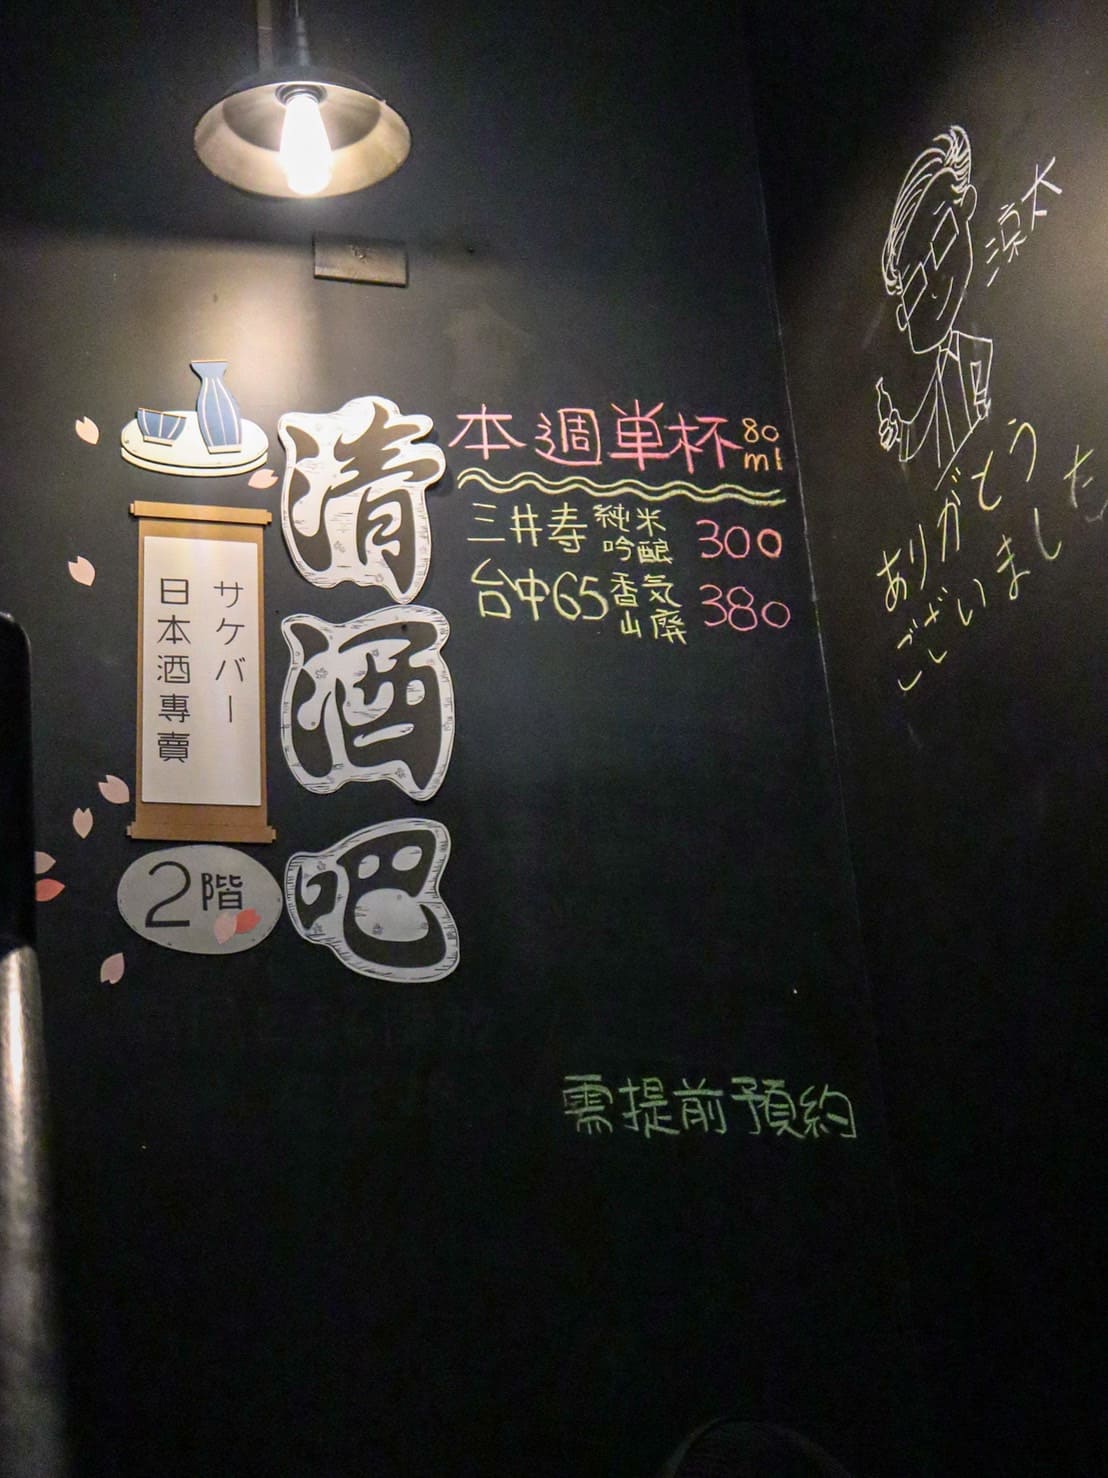 清酒吧
サケバー
日本酒專賣
2階
本週単杯 80ml
三井寿 純米吟酿 300
台中65 香気山廃 380
需提前預約
涼太
ありがとう
ございました